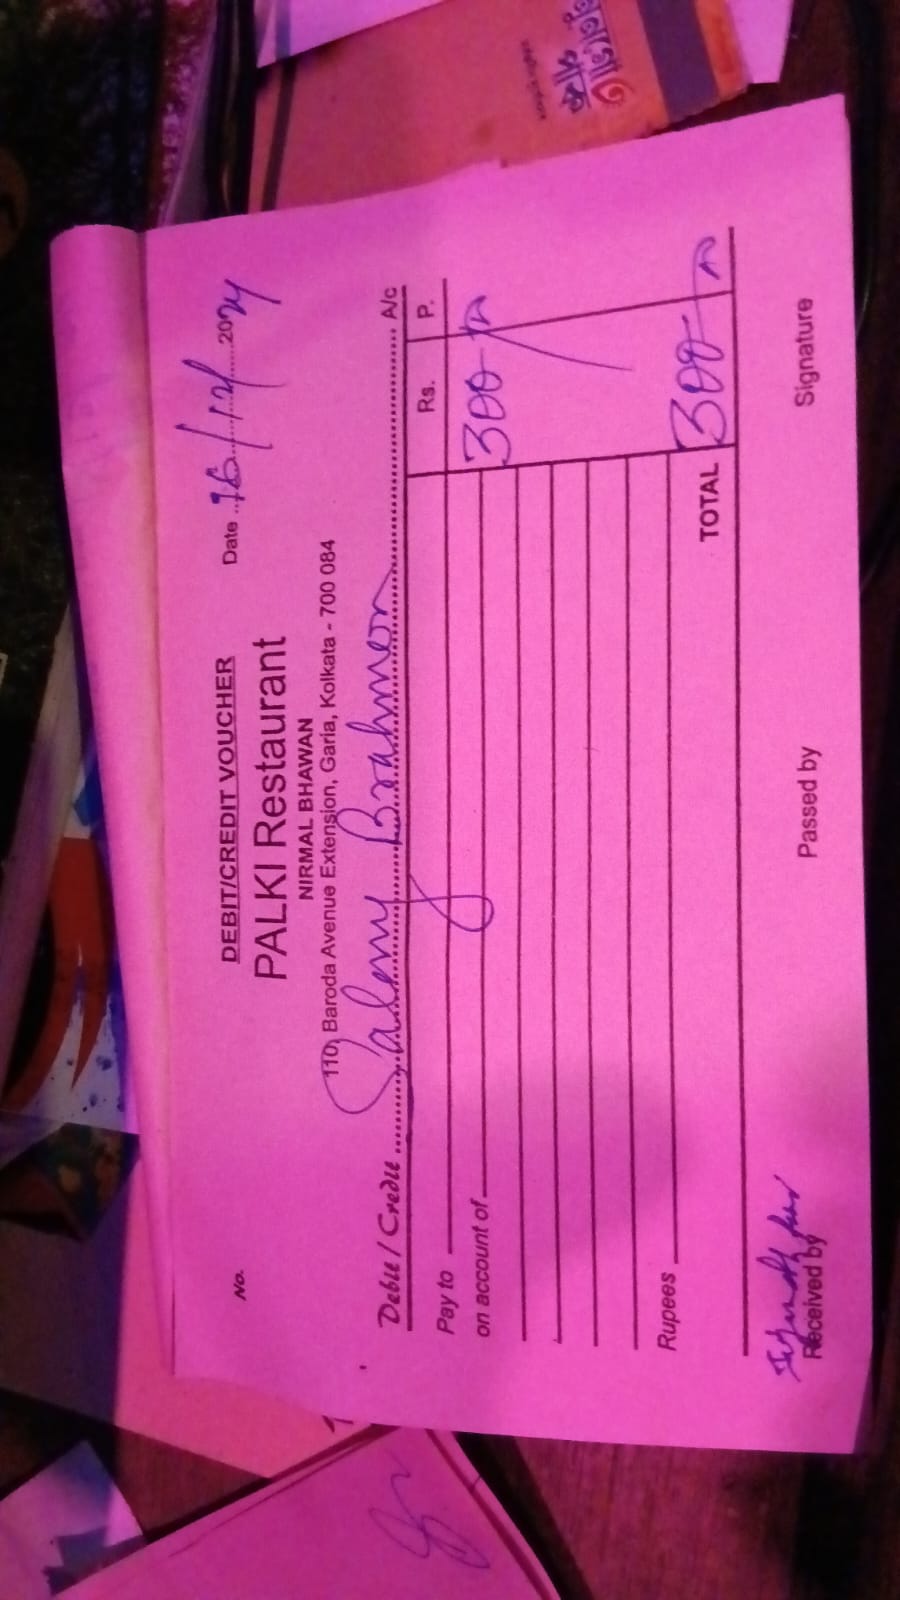 DEBIT/CREDIT VOUCHER
PALKI Restaurant
NIRMAL BHAWAN
110, Baroda Avenue Extension, Garia, Kolkata - 700 084
No.
Date 16/12/2024
Debit / Credit A/c
Pay to Rs. P.
on account of 300
Rupees
TOTAL 300
Received by Passed by Signature